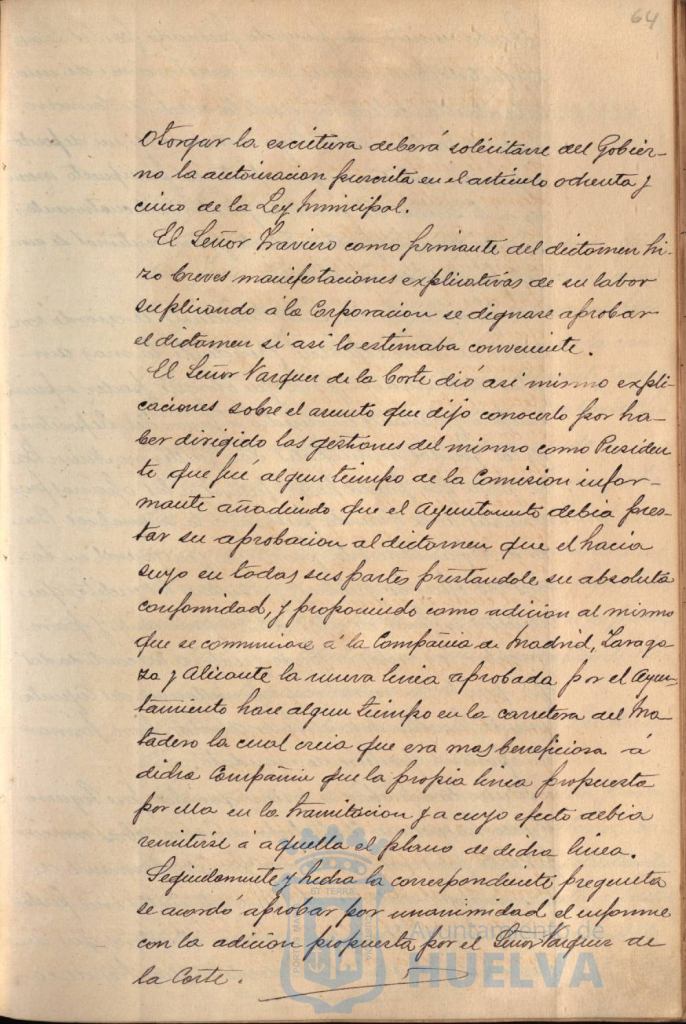 64
otorgar la escritura deberá solicitarse del Gobier-
no la autorizacion prescrita en el articulo ochenta y
cinco de la Ley Municipal.
El Señor Traviero como firmante del dictamen hi-
zo breves manifestaciones explicativas de su labor
suplicando á la Corporacion se dignase aprobar
el dictamen si asi lo estimaba conveniente.
El Señor Vazquez de la Corte dió asi mismo expli-
caciones sobre el asunto que dijo conocerlo por ha-
ber dirigido las gestiones del mismo como Presiden
te que fué algun tiempo de la Comision infor-
mante añadiendo que el Ayuntamto debia pres-
tar su aprobacion al dictamen que el hacia
suyo en todas sus partes prestandole su absoluta
conformidad, y proponiendo como adicion al mismo
que se comunicase á la Compañia de Madrid, Zarago-
za y Alicante la nueva linea aprobada por el Ayun-
tamiento hace algun tiempo en la carretera del Ma
tadero la cual creia que era mas beneficiosa á
dicha Compañia que la propia linea propuesta
por ella en la tramitacion y a cuyo efecto debia
remitirse á aquella el plano de dicha linea.
Seguidamente y hecha la correspondiente pregunta
se acordó aprobar por unanimidad el informe
con la adicion propuesta por el Señor Vazquez de
la Corte.
Ayuntamiento de
HUELVA